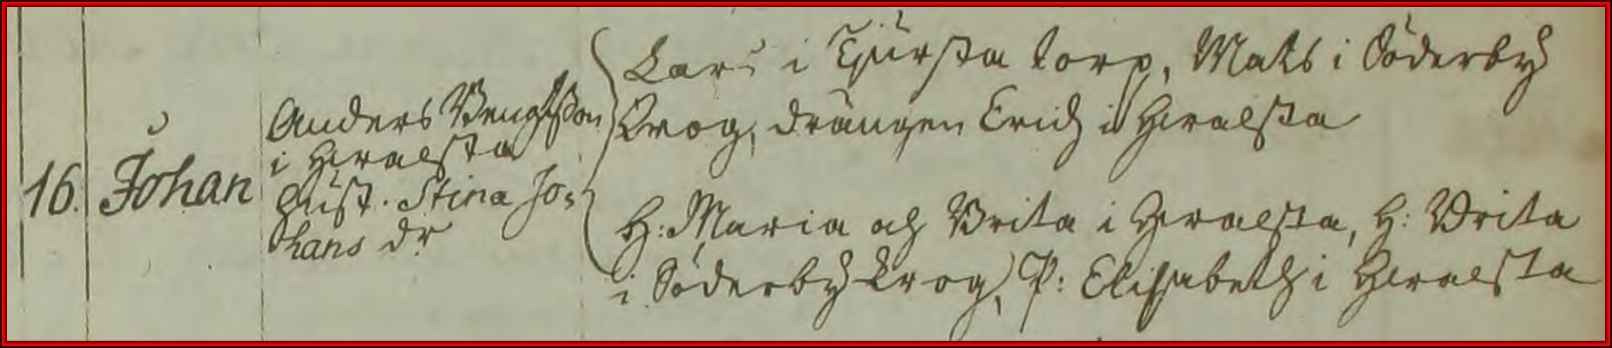 16.
Johan
Anders Bengtsson
i Heralsta
Hust. Stina Jo=
hans dr
Lars i Tjursta torp, Mats i Söderby
Krog, drängen Erich i Heralsta
H: Maria och Brita i Heralsta, H: Brita
i Söderby krog, P: Elisabeth i Heralsta